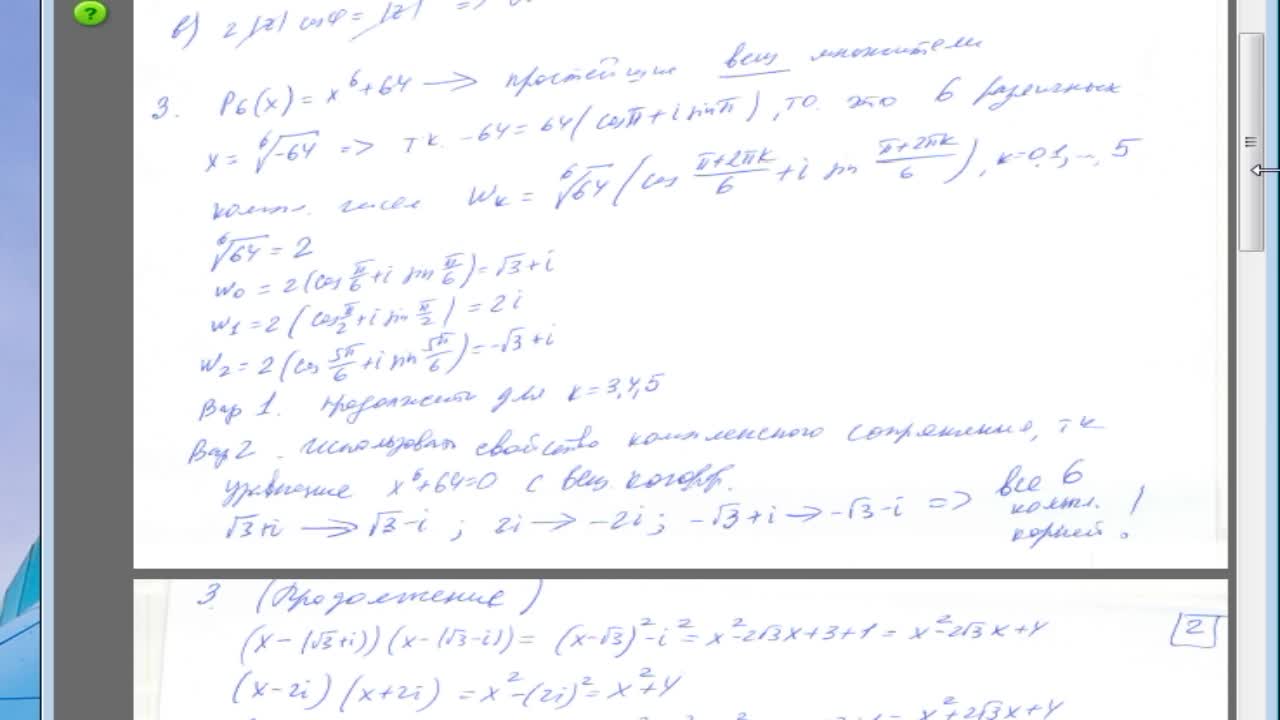 в) 2|z| cosφ = |z| =>
3. P₆(x) = x⁶+64 → простейшие вещ множители
x = ⁶√-64 => т.к. -64 = 64(cosπ + i sinπ), то это 6 различных
компл. чисел Wₖ = ⁶√64 (cos (π+2πk)/6 + i sin (π+2πk)/6), k=0,1,…,5
⁶√64 = 2
W₀ = 2(cos π/6 + i sin π/6) = √3+i
W₁ = 2(cos π/2 + i sin π/2) = 2i
W₂ = 2(cos 5π/6 + i sin 5π/6) = -√3+i
Вар 1. продолжить для k=3,4,5
Вар 2. использовать свойство комплексного сопряжения, т к
уравнение x⁶+64=0 с вещ. коэфф.
√3+i → √3-i ; 2i → -2i ; -√3+i → -√3-i => все 6 компл. корней!
3 (Продолжение)
(x-(√3+i))(x-(√3-i)) = (x-√3)²-i² = x²-2√3x+3+1 = x²-2√3x+4
2
(x-2i)(x+2i) = x²-(2i)² = x²+4
x²+2√3x+4